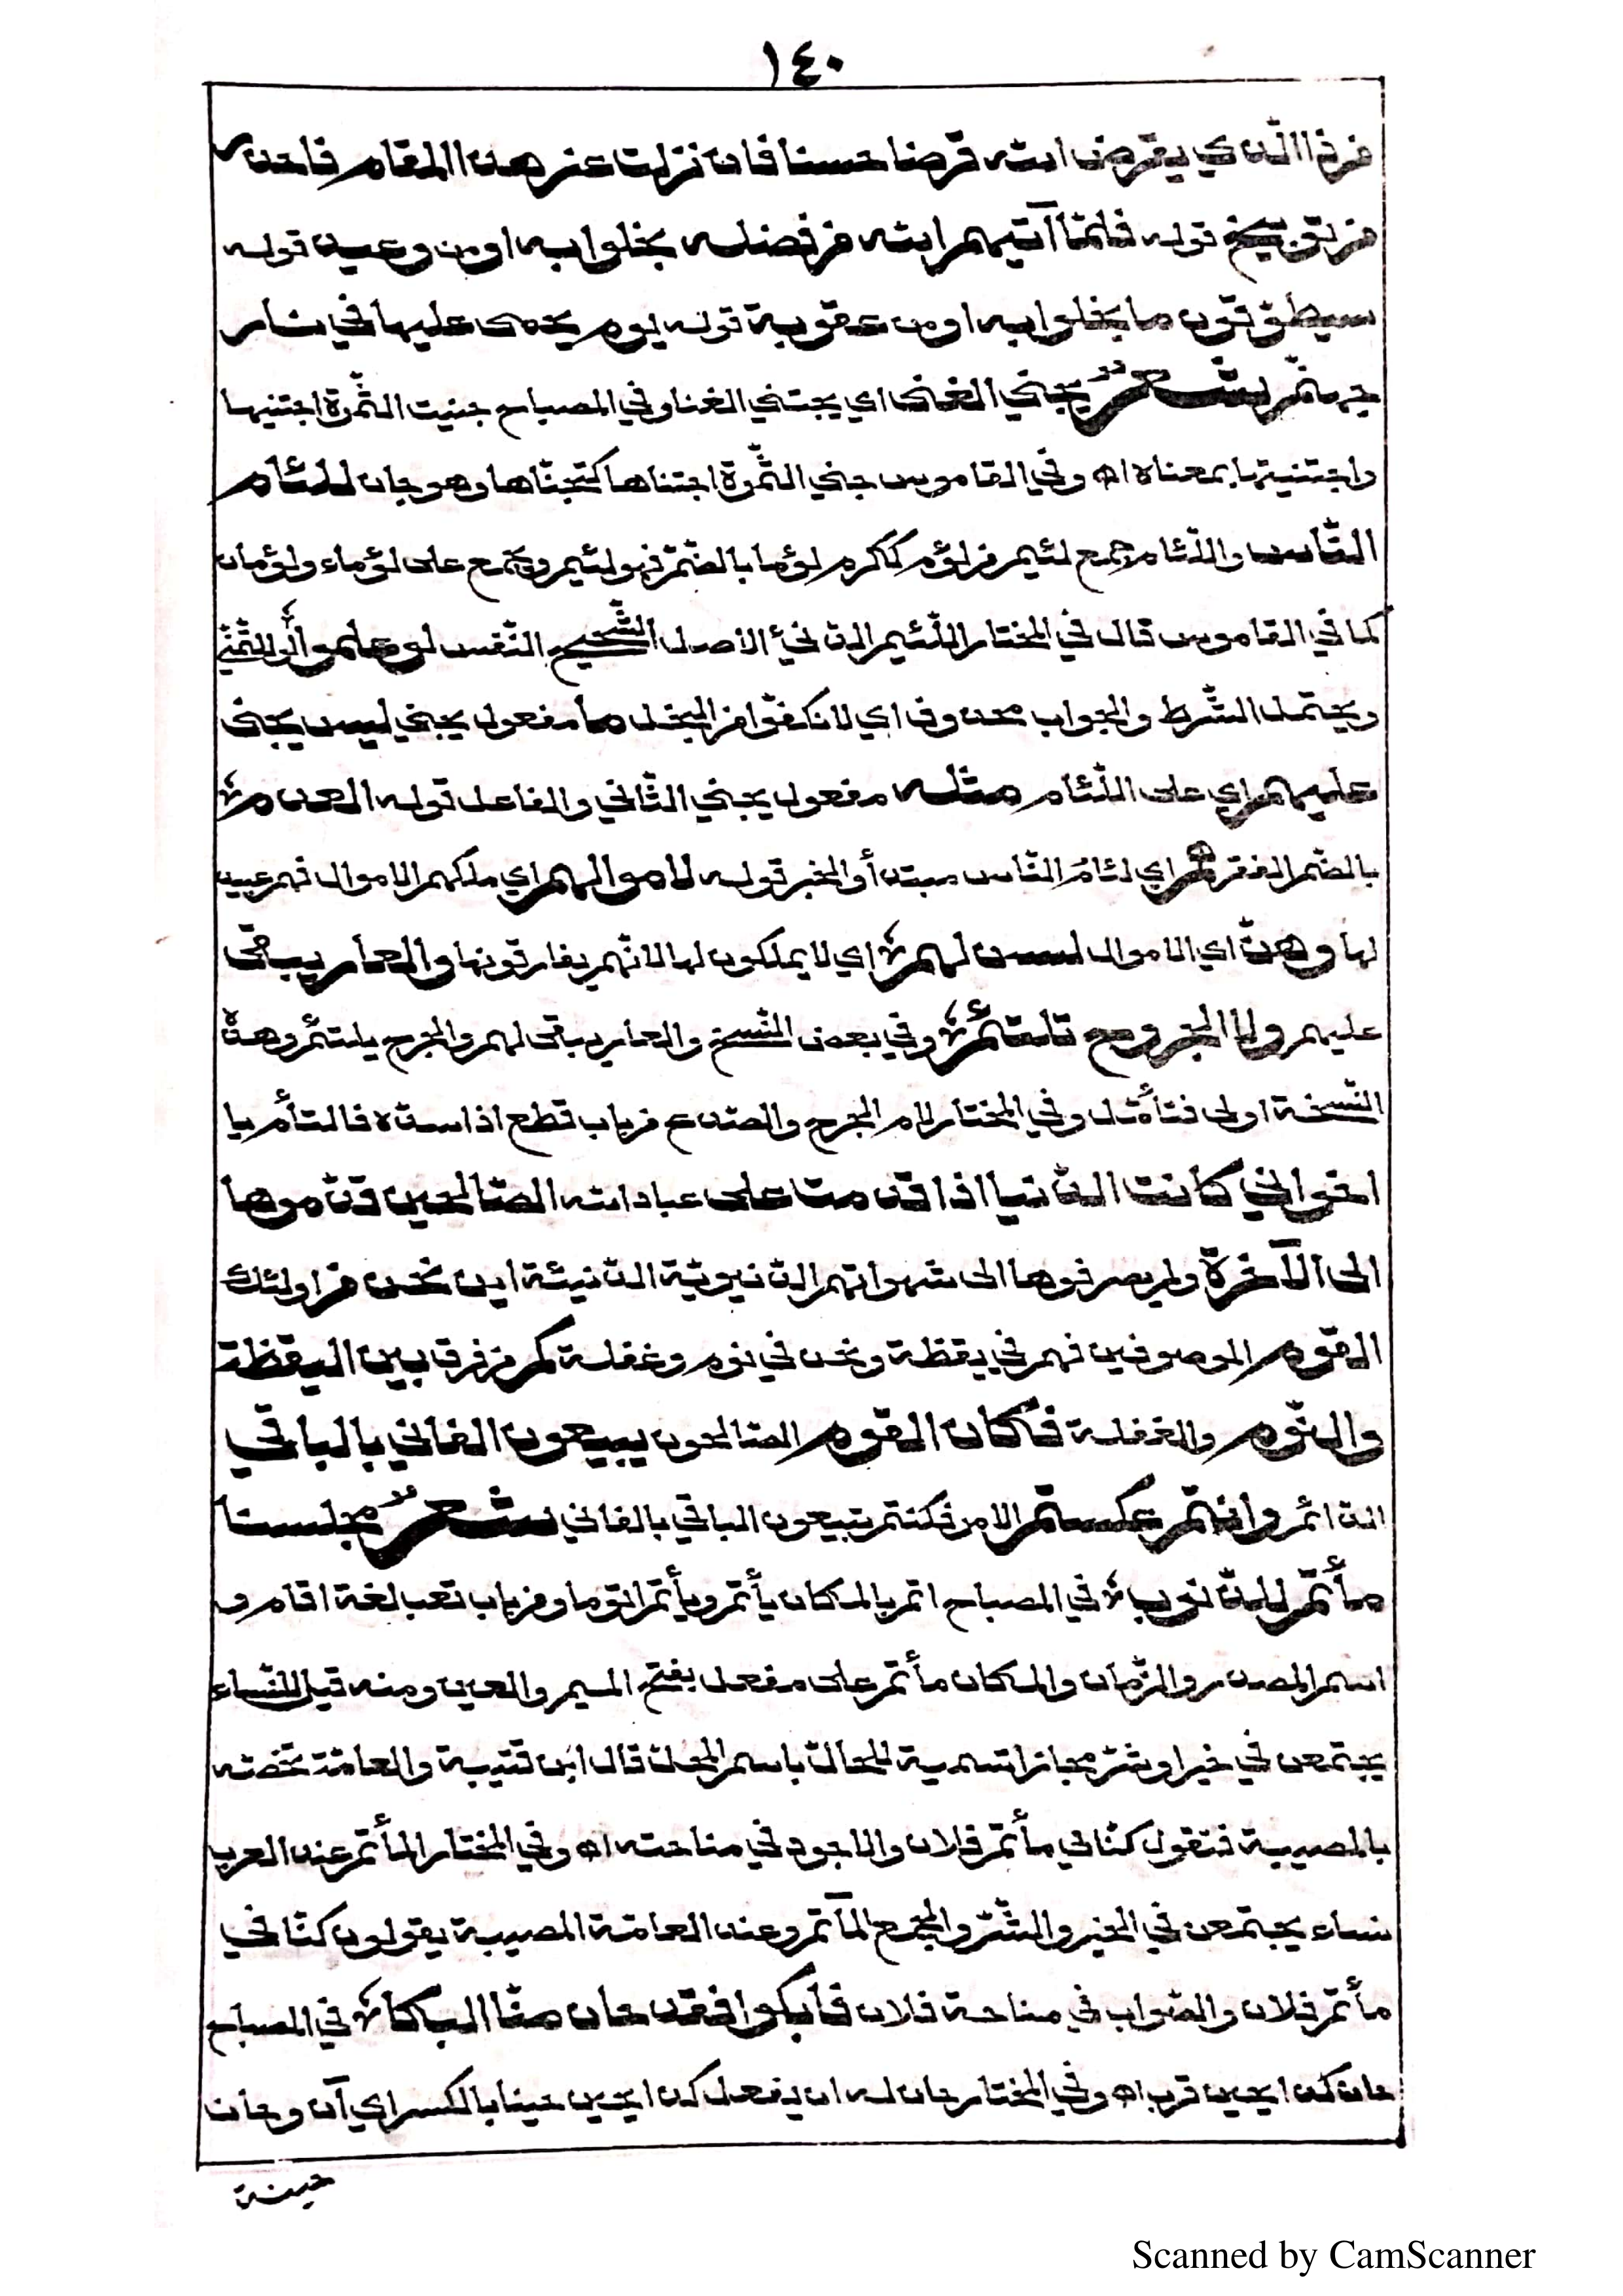 ١٤٠
من ذا الذي يقرض الله قرضا حسنا فان نزلت عن هذا المقام فاحذر
من توبيخ قوله فلمّا آتيهم الله من فضله بخلوا به او من وعيد قوله
سيطوّقون ما بخلوا به او من عقوبة قوله يوم يحمى عليها في نار
جهنّم شعر يجني الغنى اي يجتني الغنا وفي المصباح جنيت الثّمرة اجتنيها
واجتنيتها بمعناه اه وفي القاموس جنى الثّمرة اجتناها كتجنّاها وهو جان للئام
النّاس واللّئام جمع لئيم من لؤم ككرم لؤما بالضّمّ فهو لئيم ويجمع على لؤماء ولؤمان
كما في القاموس قال في المختار اللّئيم الدّنيء الاصل الشّحيح النّفس لو علموا لو للتّمنّي
ويحتمل الشّرط والجواب محذوف اي لانكفّوا من البخل ما مفعول يجني ليس يجني
عليهم اي على اللّئام مثله مفعول يجني الثّاني والفاعل قوله العدم
بالضّمّ الفقر هم اي لئام النّاس مبتدأ والخبر قوله لاموالهم اي ملكهم الاموال فهم عبيد
لها وهنّ اي الاموال لسن لهم اي لا يملكون لها لانّهم يفارقونها والعار يبقى
عليهم ولا الجروح تلتئم وفي بعض النّسخ والعار يبقى لهم والجرح يلتئم وهذه
النّسخة اولى فتأمّل وفي المختار لام الجرح والصّدع من باب قطع اذا سدّه فالتأم يا
اخواني كانت الدّنيا اذا قدمت على عباد الله الصّالحين قدّموها
الى الآخرة ولم يصرفوها الى شهواتهم الدّنيويّة الدّنيئة اين نحن من اولئك
القوم الموصوفين فهم في يقظة ونحن في نوم وغفلة كم من فرق بين اليقظة
والنّوم والغفلة فكان القوم الصّالحون يبيعون الفاني بالباقي
الدّائم وانتم عكستم الامر فكنتم تبيعون الباقي بالفاني شعر مجلسنا
مأتم للذّنوب في المصباح اتم بالمكان يأتم ويأتم اتوما ومن باب تعب لغة اقام و
اسم المصدر والزّمان والمكان مأتم على مفعل بفتح الميم والعين ومنه قيل للنّساء
يجتمعن في خير او شرّ مجازا تسمية للحالّ باسم المحلّ قال ابن قتيبة والعامّة تخصّه
بالمصيبة فتقول كنّا في مأتم فلان والاجود في مناحته اه وفي المختار المأتم عند العرب
نساء يجتمعن في الخير والشّرّ والجمع المآتم وعند العامّة المصيبة يقولون كنّا في
مأتم فلان والصّواب في مناحة فلان فابكوا فقد حان منّا البكا في المصباح
حان كذا يحين قرب اه وفي المختار حان له ان يفعل كذا يحين حينا بالكسر اي آن وحان
حينه
Scanned by CamScanner